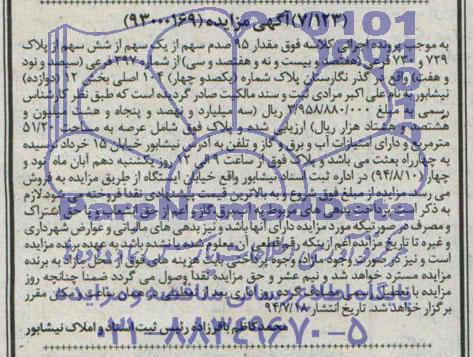 (۷/۱۲۳) آگهی مزایده (۹۳۰۰۰۱۶۹)
به موجب پرونده اجرائی کلاسه فوق مقدار ۹۵ صدم سهم از یک سهم از شش سهم از پلاک
۷۲۹ و ۷۳۰ فرعی (هفتصد و بیست و نه و هفتصد و سی) از شماره ۳۹۷ فرعی (سیصد و نود
و هفت) واقع در گذر نگارستان پلاک شماره (یکصدو چهار) ۱۰۴ اصلی بخش ۱۲ (دوازده)
نیشابور به نام علی اکبر مرادی ثبت و سند مالکیت صادر گردیده است که طبق نظر کارشناس
رسمی به مبلغ ۳/۹۵۸/۸۸۰/۰۰۰ ریال (سه میلیارد و نهصد و پنجاه و هشت میلیون و
هشتصد و هشتاد هزار ریال) ارزیابی شده و پلاک فوق شامل عرصه به مساحت ۵۱/۳۰
مترمربع و دارای امتیازات آب و برق و گاز و تلفن به آدرس نیشابور خیابان ۱۵ خرداد نرسیده
به چهارراه بعثت می باشد و پلاک فوق از ساعت ۹ الی ۱۲ روز یکشنبه دهم آبان ماه نود و
چهار (۹۴/۸/۱۰) در اداره ثبت اسناد نیشابور واقع خیابان ایستگاه از طریق مزایده به فروش
می رسد مزایده از مبلغ فوق شروع و به بالاترین قیمت پیشنهادی نقدا فروخته می شود.لازم
به ذکر است پرداخت بدهی های مربوط به آب،برق،گاز و اعم از حق انشعاب و یا حق اشتراک
و مصرف در صورتیکه مورد مزایده دارای آنها باشد و نیز بدهی های مالیاتی و عوارض شهرداری
و غیره تا تاریخ مزایده اعم از اینکه رقم قطعی آن معلوم شده یا نشده باشد به عهده برنده مزایده
است و نیز در صورت وجود مازاد وجوه پرداختی بابت هزینه های فوق از محل مازاد به برنده
مزایده مسترد خواهد شد و نیم عشر و حق مزایده نقدا وصول می گردد ضمنا چنانچه روز
مزایده با تعطیل رسمی مصادف گردد روز اداری بعد از تعطیلی در همان ساعت و مکان مقرر
برگزار خواهد شد. تاریخ انتشار ۹۴/۷/۱۸
محمدکاظم باقرزاده رئیس ثبت اسناد و املاک نیشابور
ParsNamadData
پایگاه اطلاع رسانی مناقصه و مزایده
۰۲۱-۸۸۳۴۹۶۷۰-۵